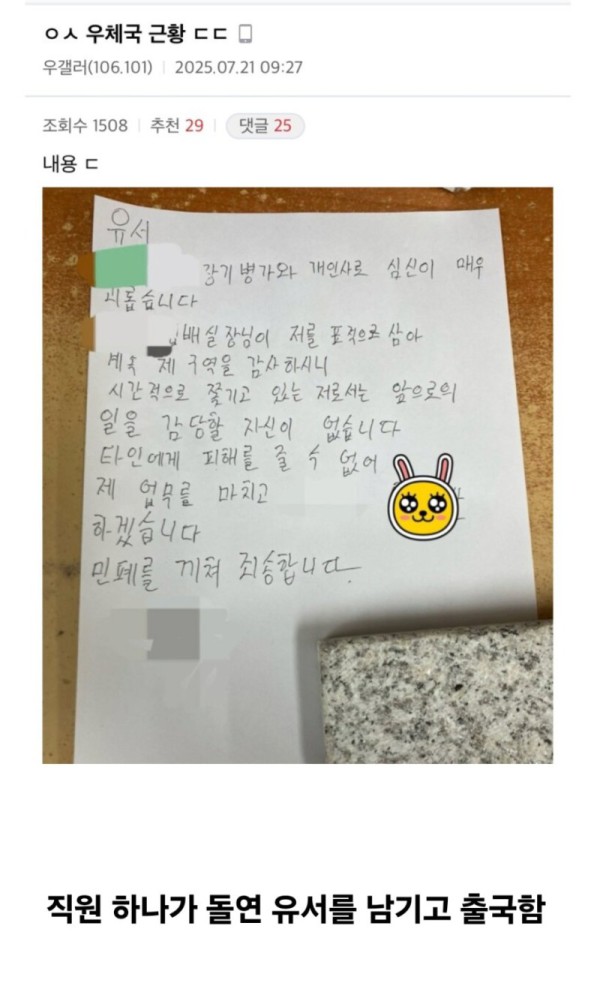 ㅇㅅ 우체국 근황 ㄷㄷ
우갤러(106.101) | 2025.07.21 09:27
조회수 1508 | 추천 29 | 댓글 25
내용 ㄷ
유서
장기병가와 개인사로 심신이 매우
괴롭습니다
실장님이 저를 표적으로 삼아
계속 제 구역을 감사하시니
시간적으로 쫓기고 있는 저로서는 앞으로의
일을 감당할 자신이 없습니다
타인에게 피해를 줄 수 없어
제 업무를 마치고
하겠습니다
민폐를 끼쳐 죄송합니다.
직원 하나가 돌연 유서를 남기고 출국함